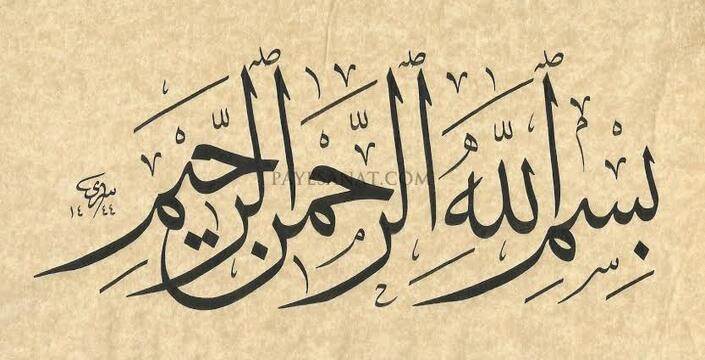 بِسْمِ اللّٰهِ الرَّحْمٰنِ الرَّحِيْمِ
PAYESANAT.COM
١٤٤٤